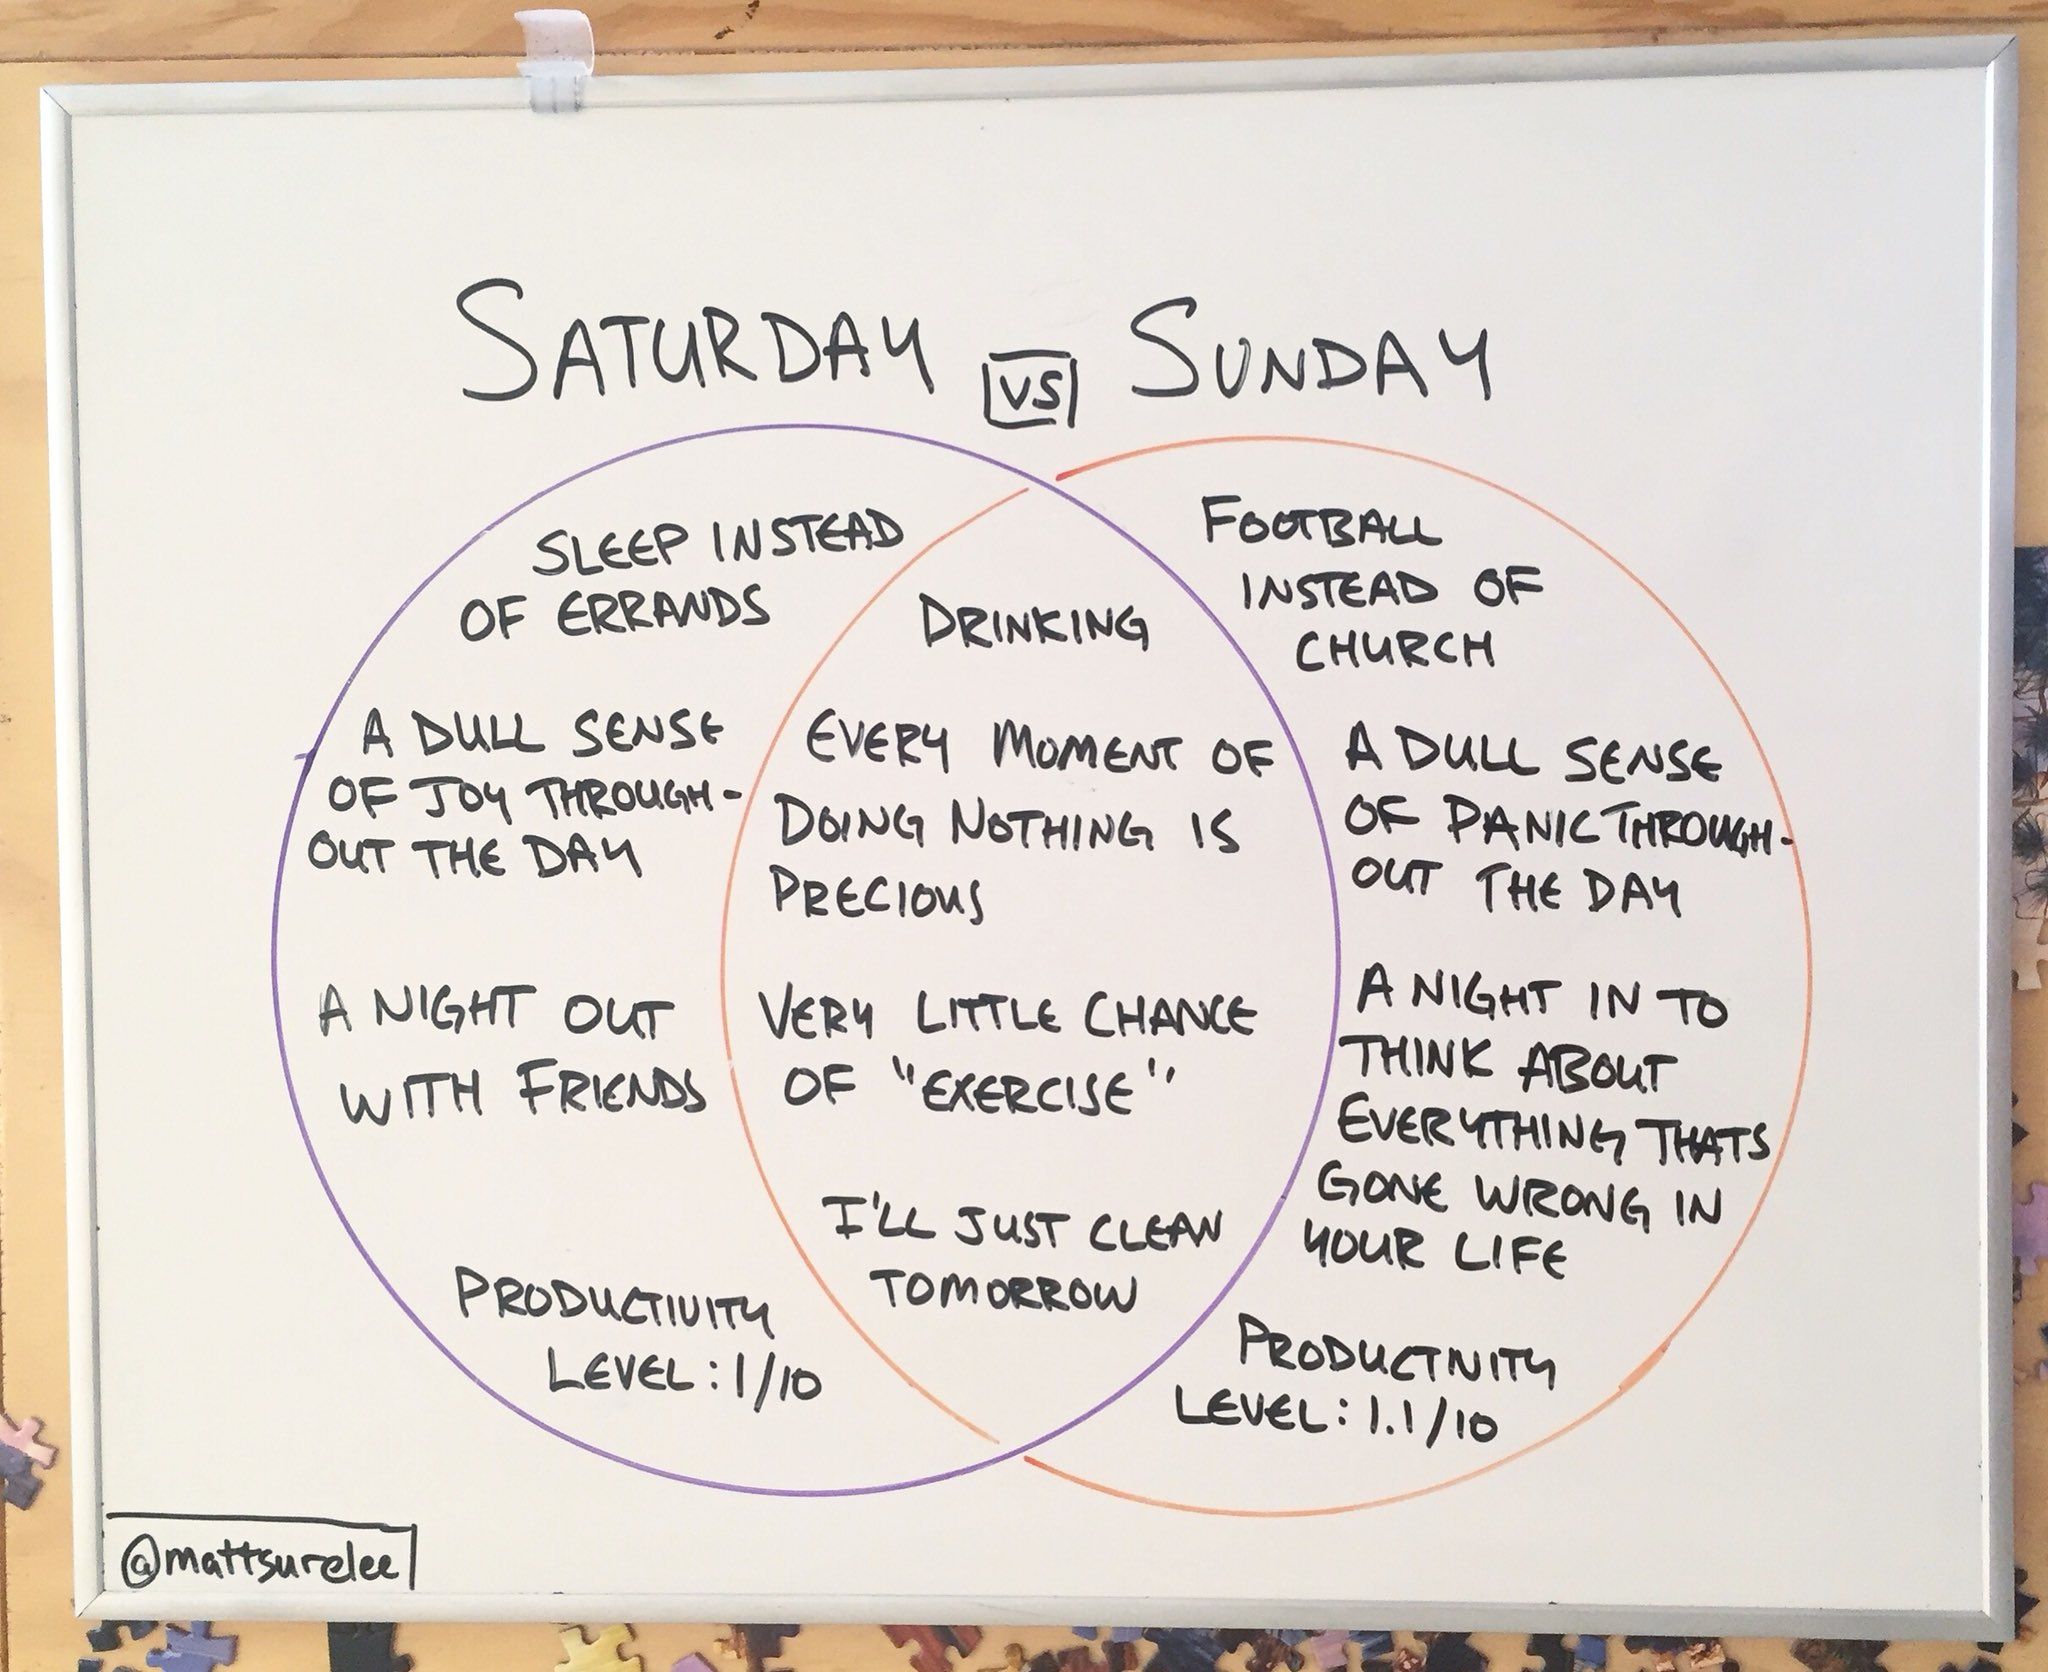 SATURDAY VS SUNDAY
SLEEP INSTEAD
OF ERRANDS
A DULL SENSE
OF JOY THROUGH-
OUT THE DAY
A NIGHT OUT
WITH FRIENDS
PRODUCTIVITY
LEVEL: 1/10
DRINKING
EVERY MOMENT OF
DOING NOTHING IS
PRECIOUS
VERY LITTLE CHANCE
OF "EXERCISE"
I'LL JUST CLEAN
TOMORROW
FOOTBALL
INSTEAD OF
CHURCH
A DULL SENSE
OF PANIC THROUGH-
OUT THE DAY
A NIGHT IN TO
THINK ABOUT
EVERYTHING THATS
GONE WRONG IN
YOUR LIFE
PRODUCTIVITY
LEVEL: 1.1/10
@mattsurelee